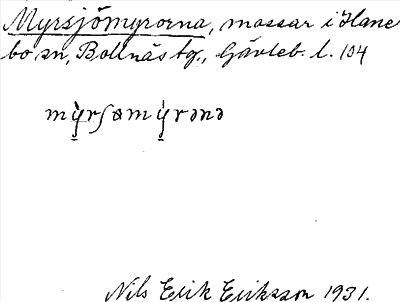 Myrsjömyrorna, mossar i Hane
bo sn, Bollnäs tg., Gävleb. l. 104
mỳ̳rʃɵmý̳rənə
Nils Erik Eriksson 1931.